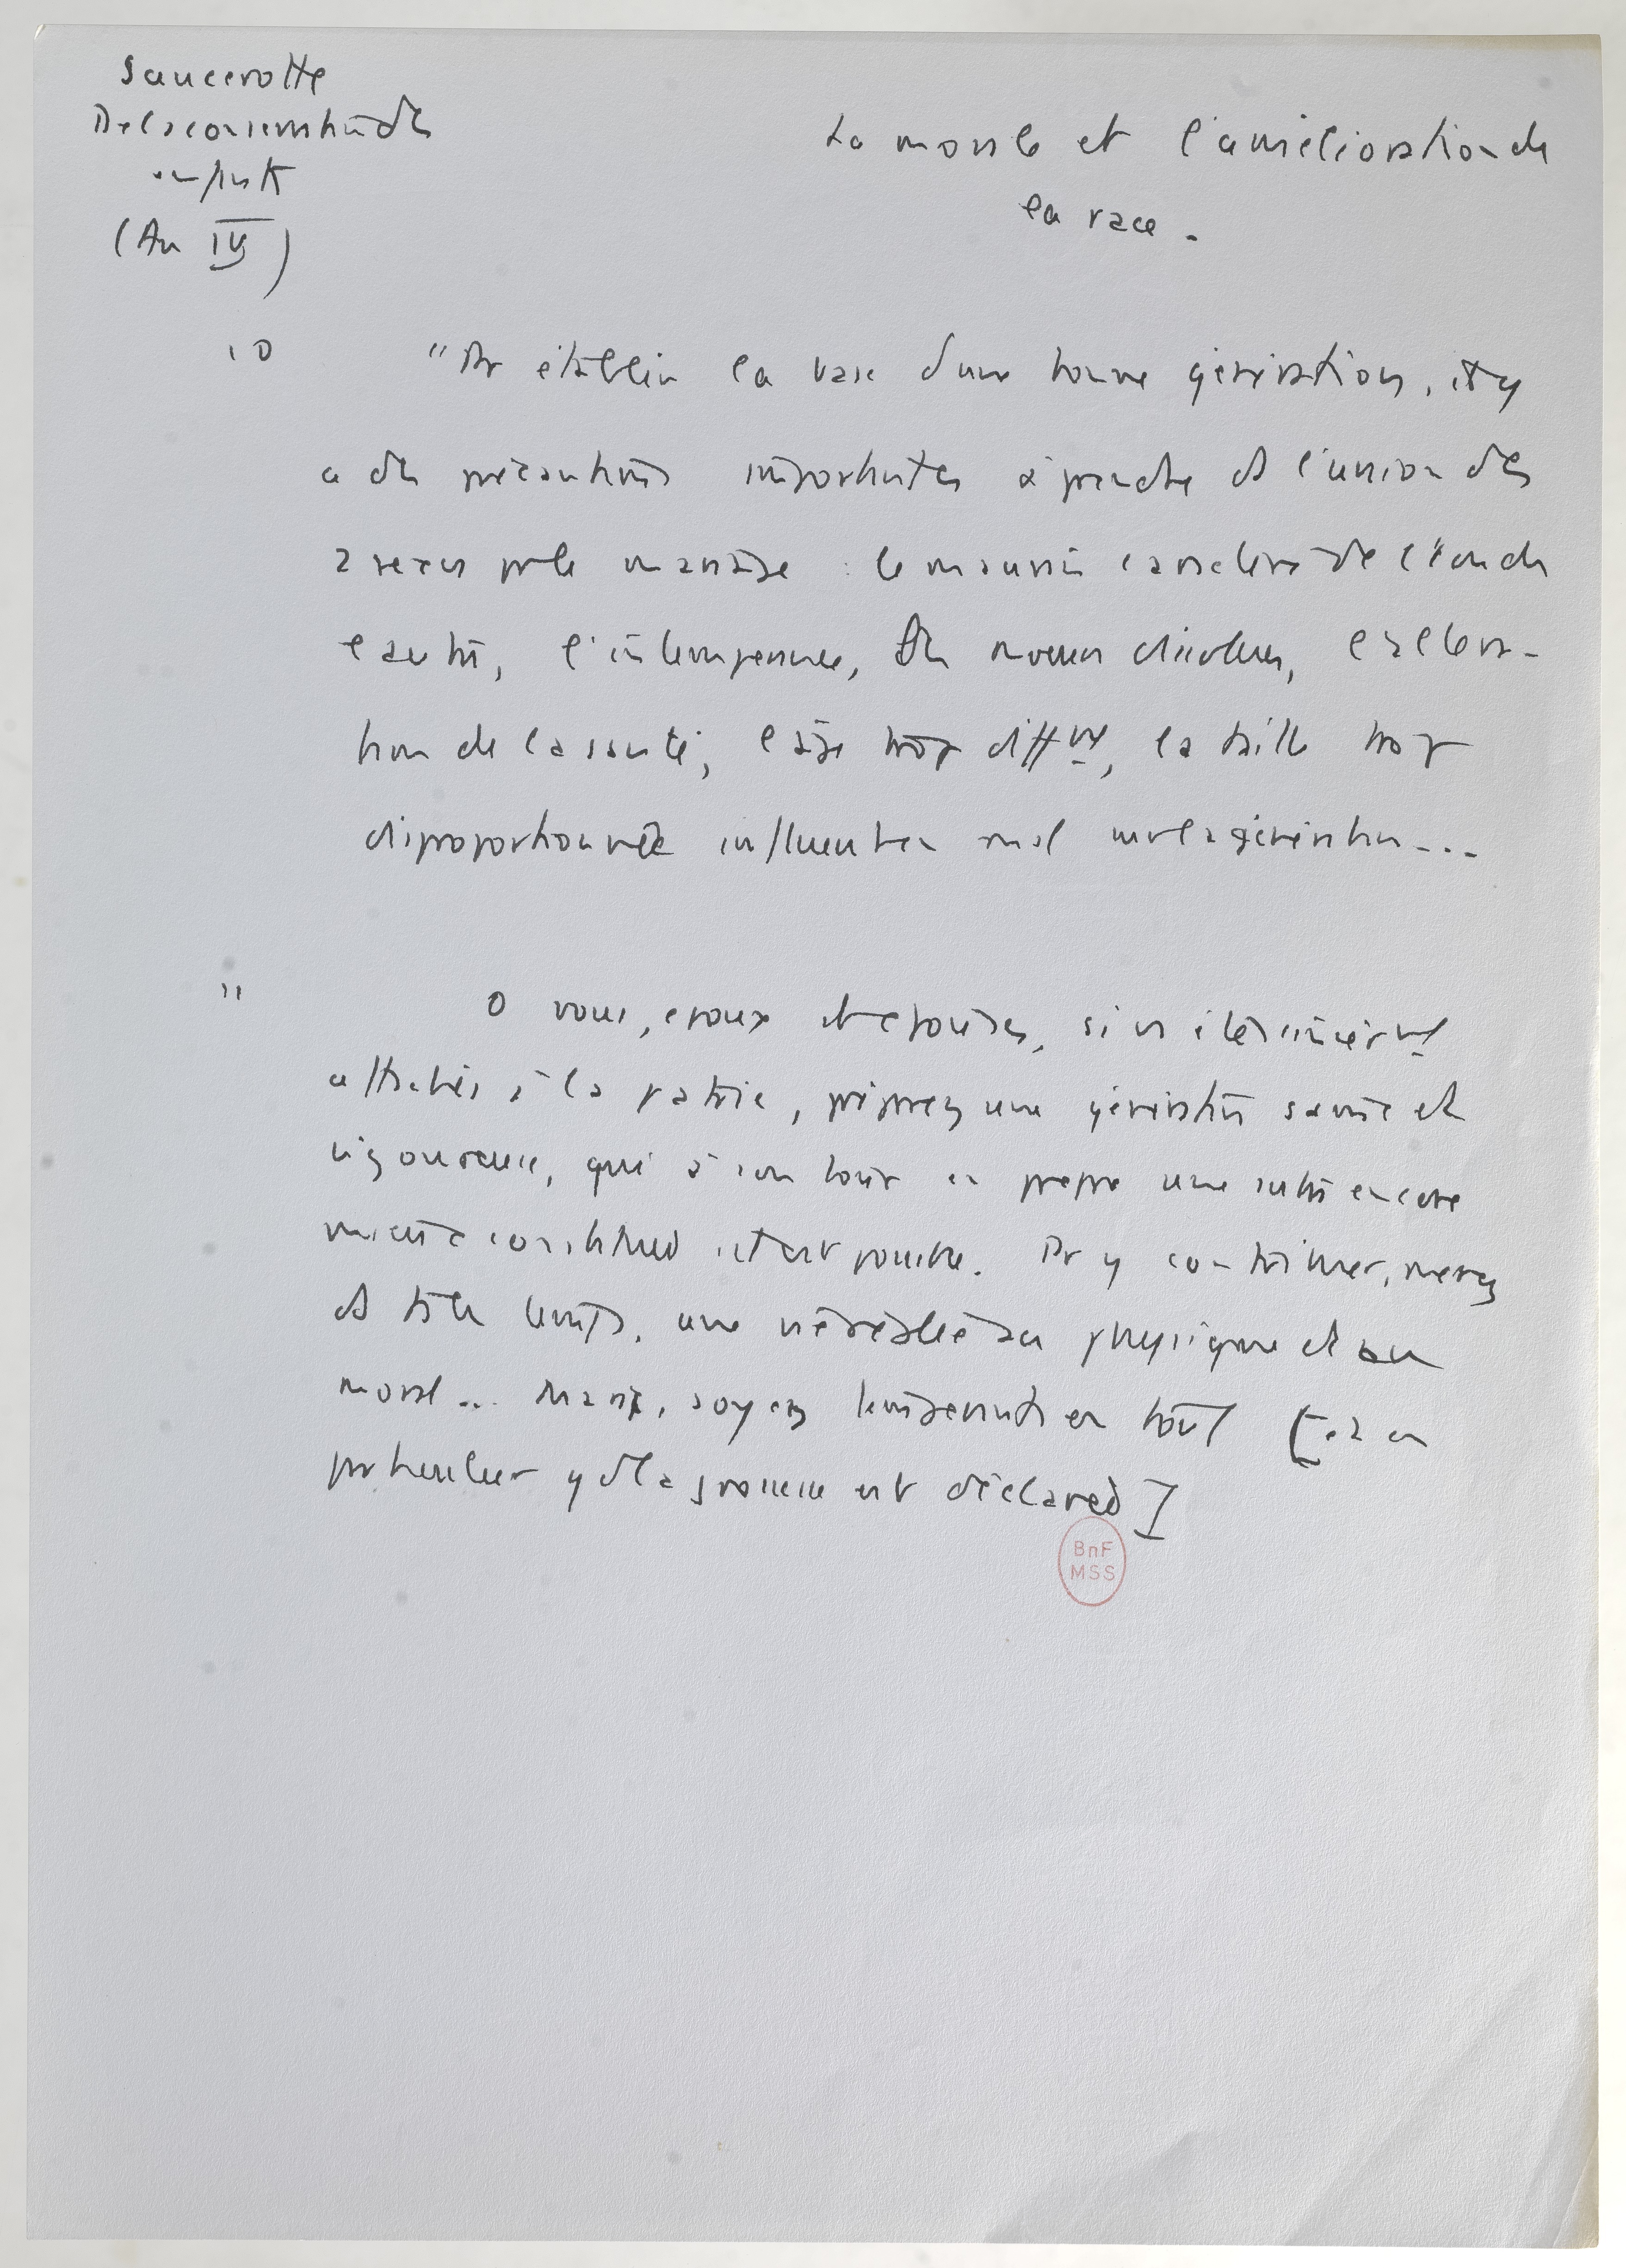 Saucerotte
De la conservation des
enfants
(An IV)
La morale et l'amélioration de
la race.
10
"Pr établir la base d'une bonne génération, il y
a des précautions importantes à prendre ds l'union des
2 sexes par le mariage : le mauvais caractère de l'un ou de
l'autre, l'intempérance, des moeurs dissolues, l'altéra-
tion de la santé, l'âge trop difft, la taille trop
disproportionnée influent en mal sur la génération...
11
O vous, époux et épouses, si vs êtes sincèrement
attachés à la patrie, préparez une génération saine et
vigoureuse, qui à son tour en prépare une autre encore
mieux constituée s'il est possible. Pr y contribuer, menez
ds tous les temps, une vie réglée au physique et au
moral... Maris, soyez tempérants en tout [et en
particulier qd la grossesse est déclarée]
BnF
MSS